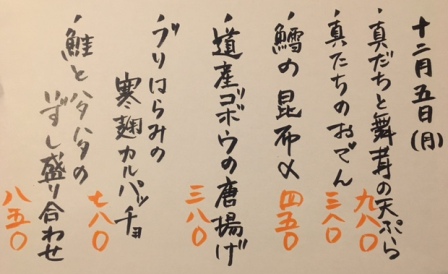 十二月五日(月)
・真だちと舞茸の天ぷら
九八〇
・真たちのおでん
三八〇
・鱈の昆布〆
四五〇
・道産ゴボウの唐揚げ
三八〇
・ブリはらみの
寒麹カルパッチョ
七八〇
・鮭とハタハタの
いずし盛り合わせ
八五〇